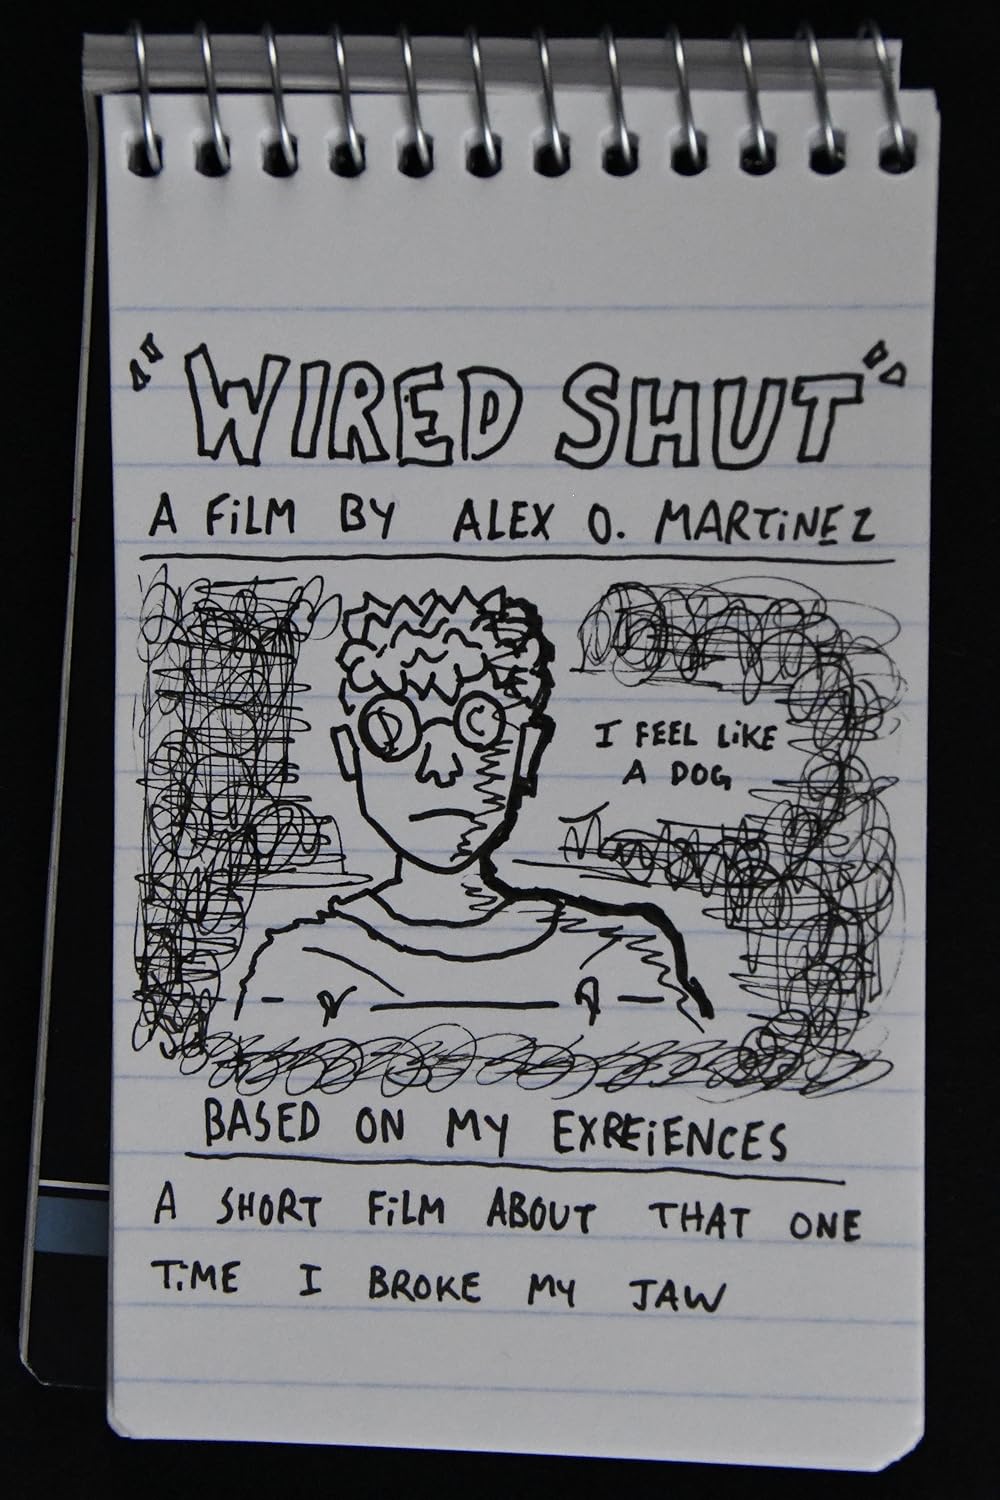 "WIRED SHUT"
A FiLM BY ALEX O. MARTiNEZ
I FEEL LiKE
A DOG
BASED ON MY EXREiENCES
A SHORT FiLM ABOUT THAT ONE
TiME I BROKE MY JAW